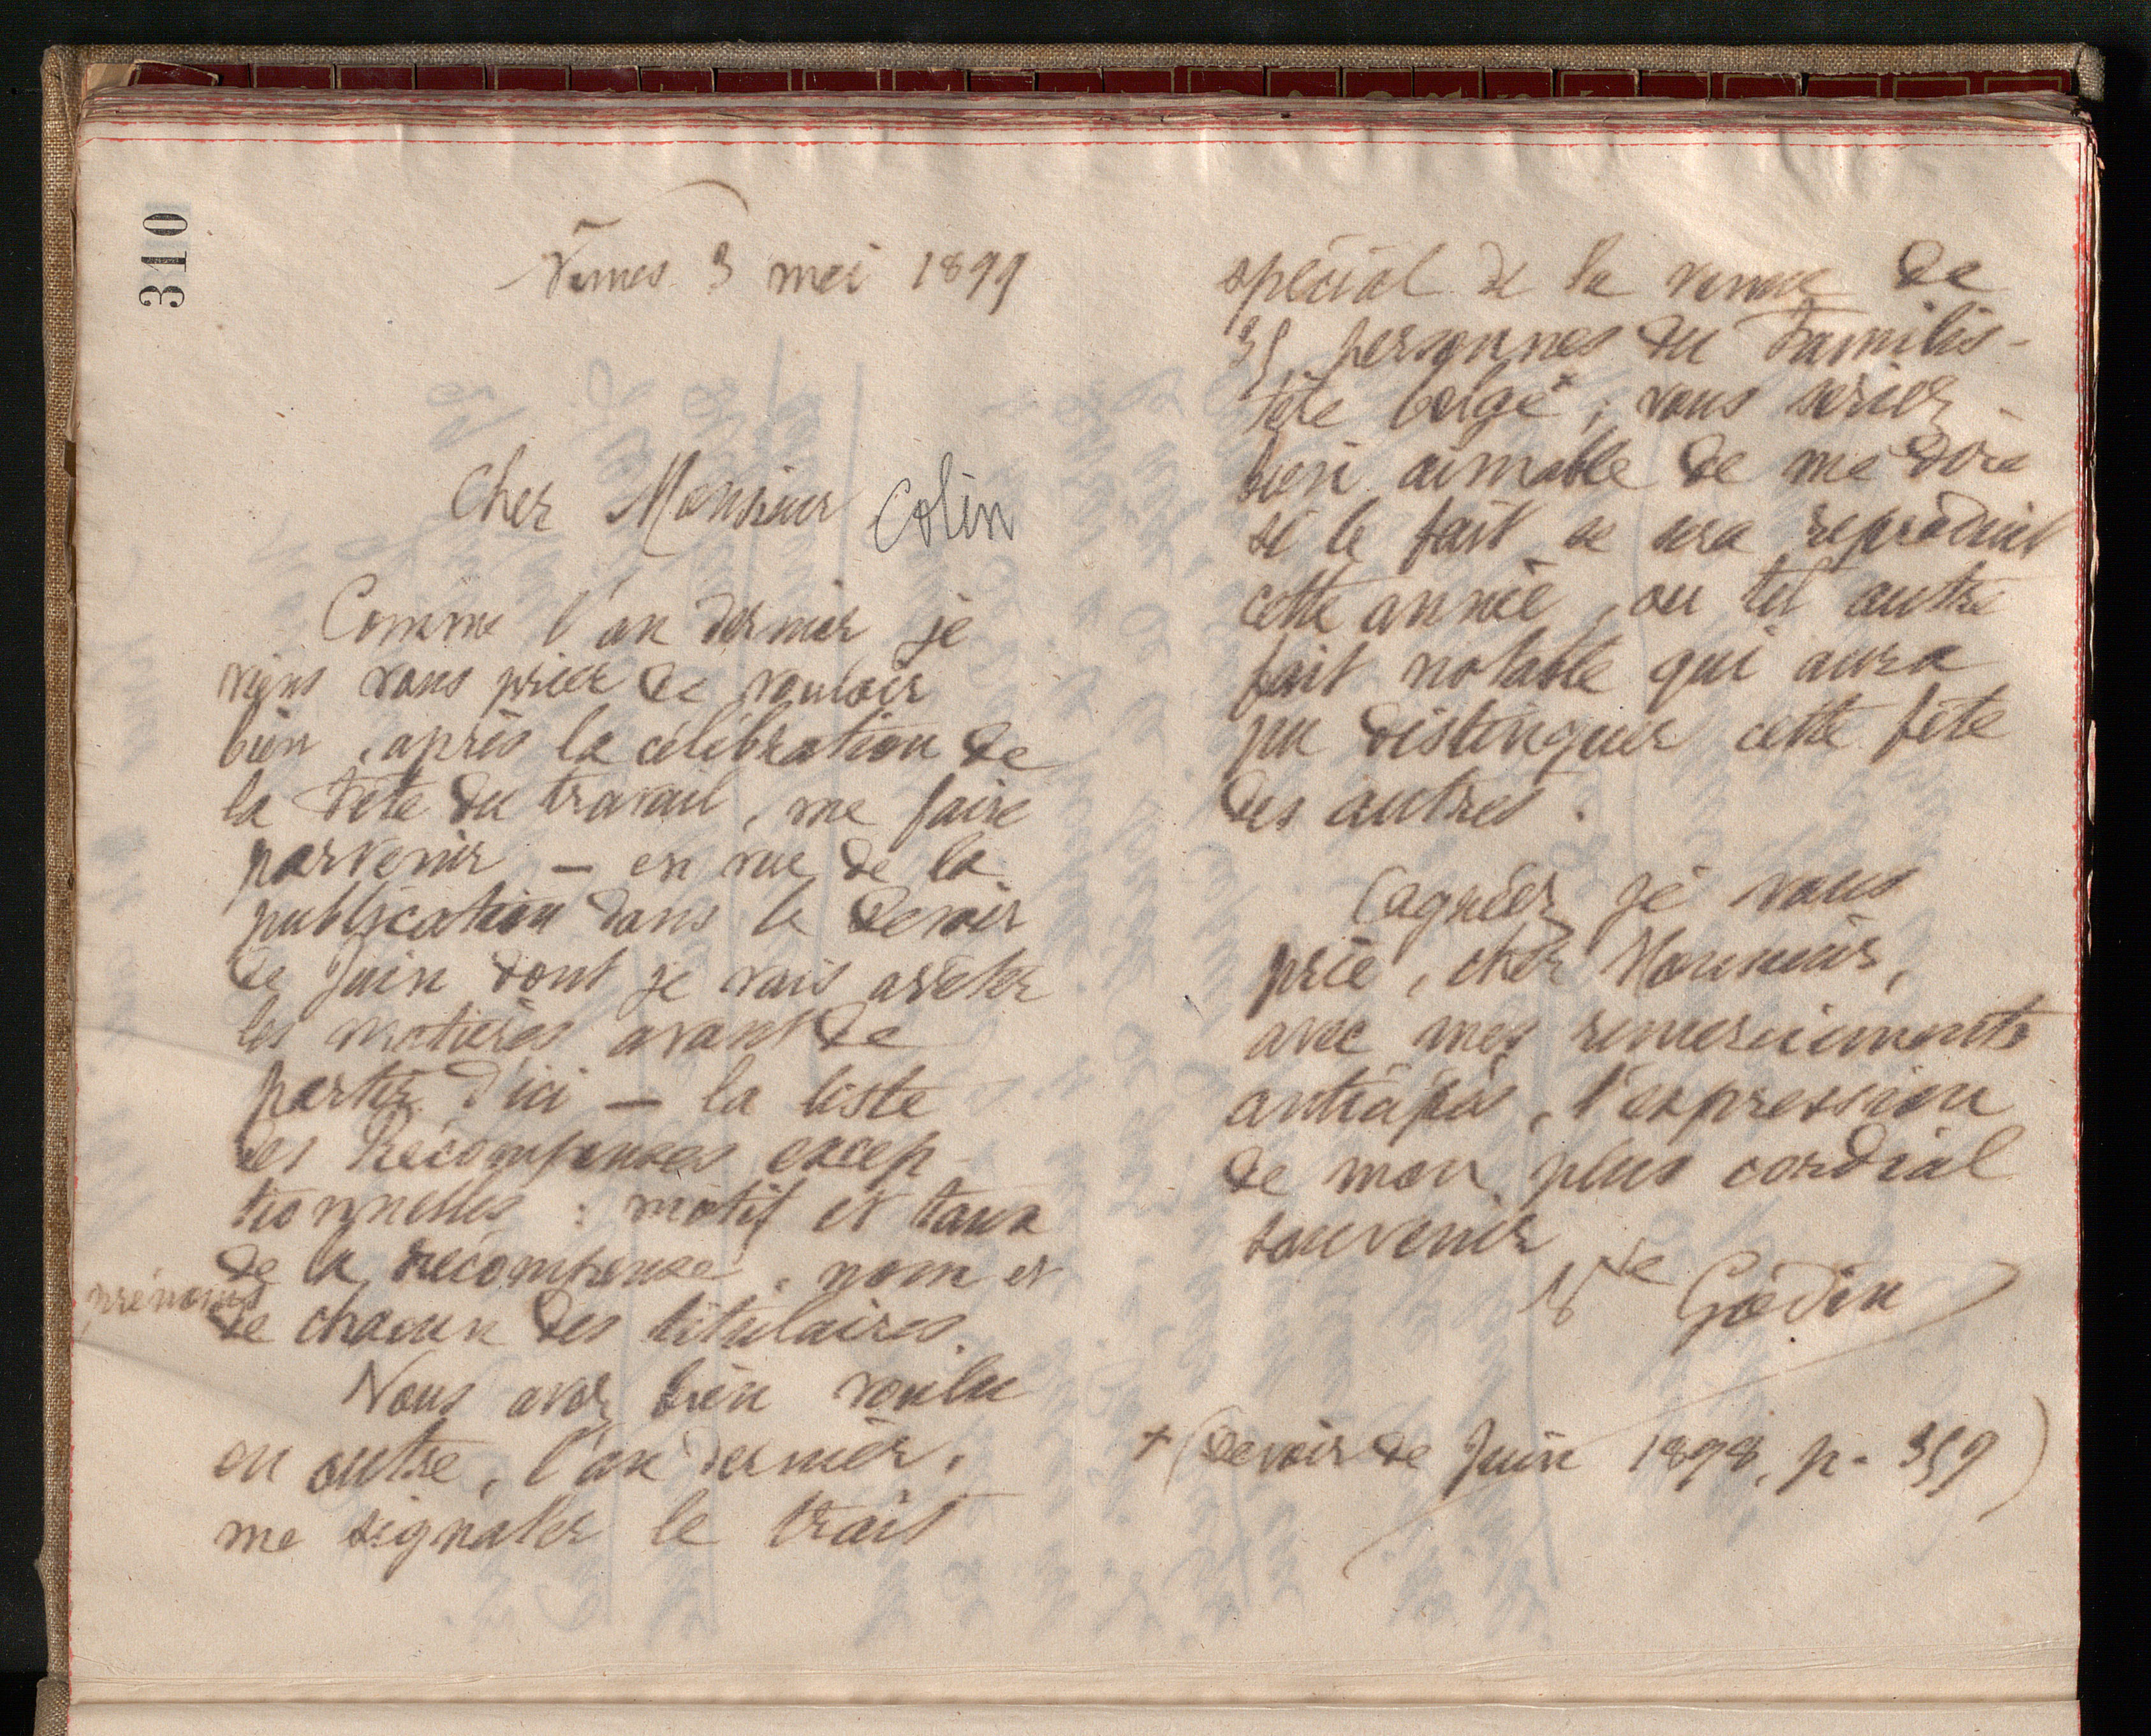 310
Nimes 3 mai 1899
Cher Monsieur Colin
Comme l'an dernier je
viens vous prier de vouloir
bien, après la célébration de
la Fête du travail, me faire
parvenir — en vue de la
publication dans le Devoir
de Juin dont je vais arrêter
les matières avant de
partir d'ici — la liste
des Récompenses excep-
tionnelles : motif et taux
de la récompense, nom et
prénoms
de chacun des titulaires.
Vous avez bien voulu
en outre, l'an dernier,
me signaler le trait
spécial de la venue de
35 personnes du Familis-
tère belge +; vous seriez
bien aimable de me dire
si le fait se sera reproduit
cette année, ou tel autre
fait notable qui aura
pu distinguer cette fête
des autres.
Cagréez je vous
prie, cher Monsieur,
avec mes remerciements
anticipés, l'expression
de mon plus cordial
souvenir
Vve Godin
+ (Devoir de Juin 1898, p. 359)